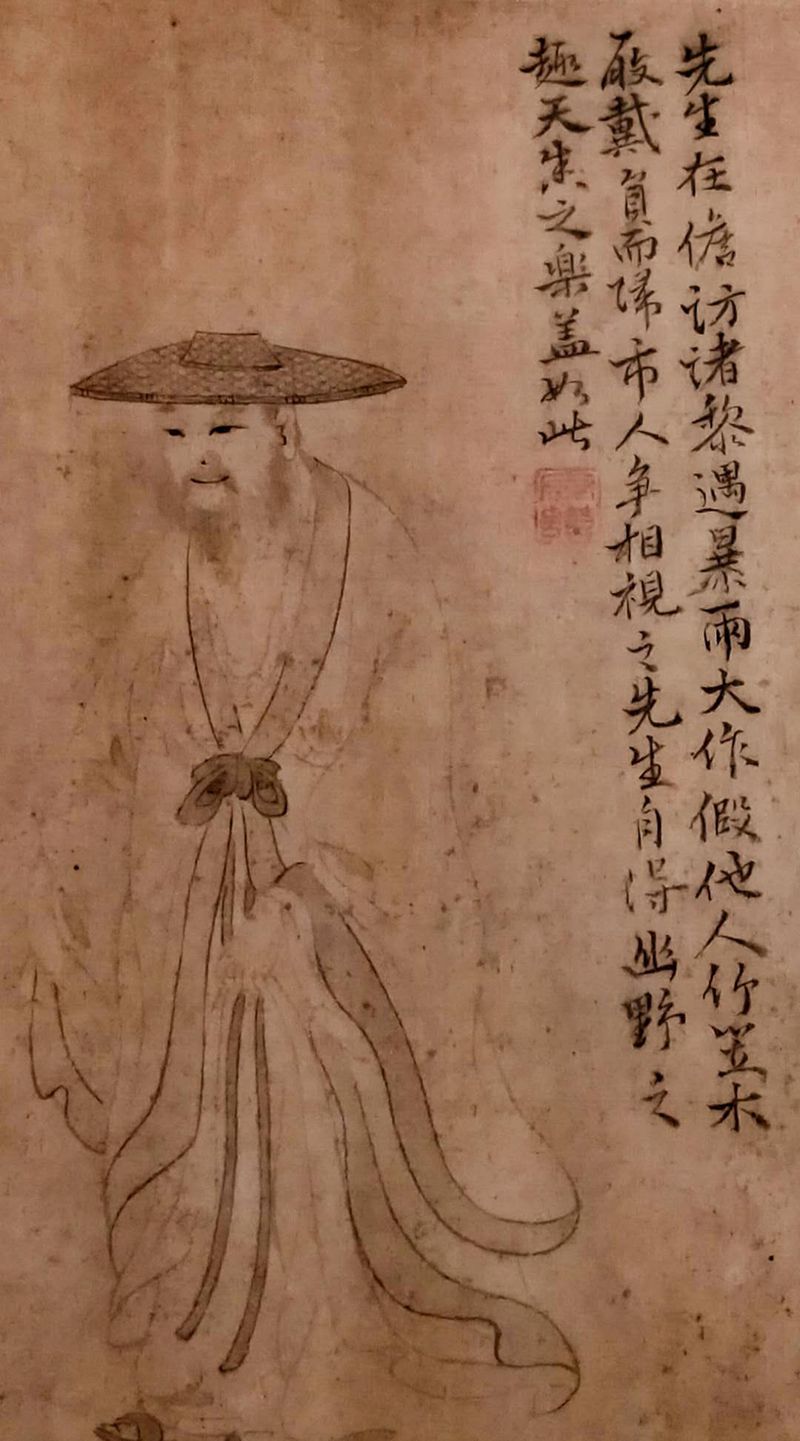 先生在儋访诸黎遇暴雨大作假他人竹笠木
屐戴負而归市人争相視之先生自得幽野之
趣天生之樂盖如此